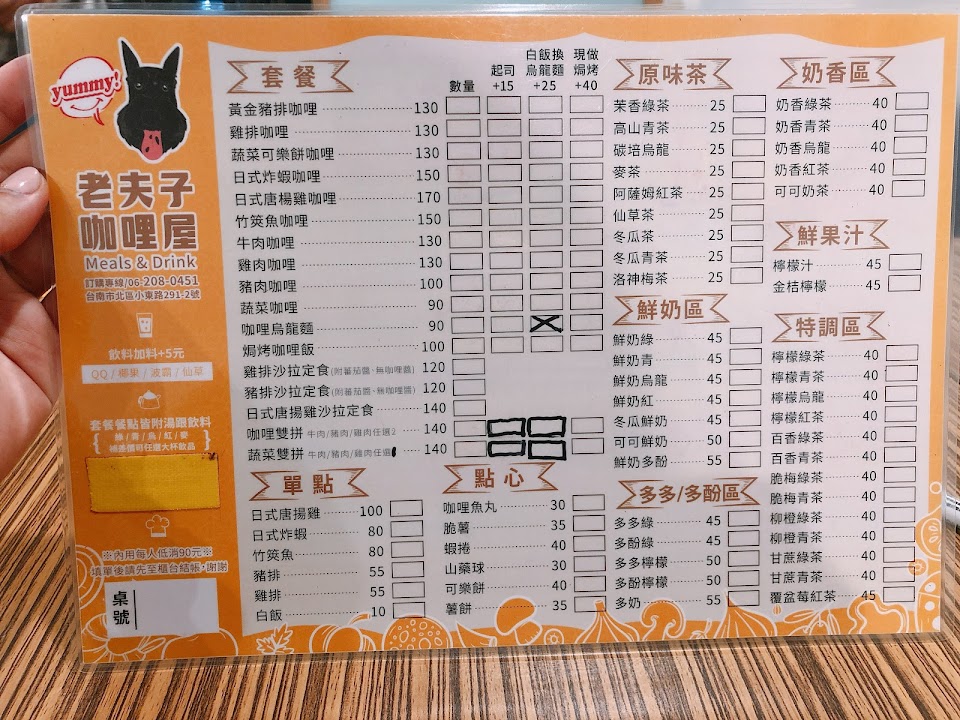 yummy!
老夫子
咖哩屋
Meals & Drink
訂購專線/06-208-0451
台南市北區小東路291-2號
飲料加料+5元
QQ/椰果/波霸/仙草
套餐餐點皆附湯跟飲料
綠/青/烏/紅/麥
補差價可任選大杯飲品
※內用每人低消90元※
填單後請先至櫃台結帳,謝謝
桌號
套餐
數量
起司 +15
白飯換烏龍麵 +25
現做焗烤 +40
黃金豬排咖哩 130
雞排咖哩 130
蔬菜可樂餅咖哩 130
日式炸蝦咖哩 150
日式唐揚雞咖哩 170
竹筴魚咖哩 150
牛肉咖哩 130
雞肉咖哩 130
豬肉咖哩 100
蔬菜咖哩 90
咖哩烏龍麵 90
焗烤咖哩飯 100
雞排沙拉定食(附蕃茄醬、無咖哩醬) 120
豬排沙拉定食(附蕃茄醬、無咖哩醬) 120
日式唐揚雞沙拉定食 140
咖哩雙拼 牛肉/豬肉/雞肉任選2 140
蔬菜雙拼 牛肉/豬肉/雞肉任選1 140
單點
日式唐揚雞 100
日式炸蝦 80
竹筴魚 80
豬排 55
雞排 55
白飯 10
點心
咖哩魚丸 30
脆薯 35
蝦捲 40
山藥球 30
可樂餅 40
薯餅 35
原味茶
茉香綠茶 25
高山青茶 25
碳培烏龍 25
麥茶 25
阿薩姆紅茶 25
仙草茶 25
冬瓜茶 25
冬瓜青茶 25
洛神梅茶 25
鮮奶區
鮮奶綠 45
鮮奶青 45
鮮奶烏龍 45
鮮奶紅 45
冬瓜鮮奶 45
可可鮮奶 50
鮮奶多酚 55
多多/多酚區
多多綠 45
多酚綠 45
多多檸檬 50
多酚檸檬 50
多奶 55
奶香區
奶香綠茶 40
奶香青茶 40
奶香烏龍 40
奶香紅茶 40
可可奶茶 40
鮮果汁
檸檬汁 45
金桔檸檬 45
特調區
檸檬綠茶 40
檸檬青茶 40
檸檬烏龍 40
檸檬紅茶 40
百香綠茶 40
百香青茶 40
脆梅綠茶 40
脆梅青茶 40
柳橙綠茶 40
柳橙青茶 40
甘蔗綠茶 40
甘蔗青茶 40
覆盆莓紅茶 45